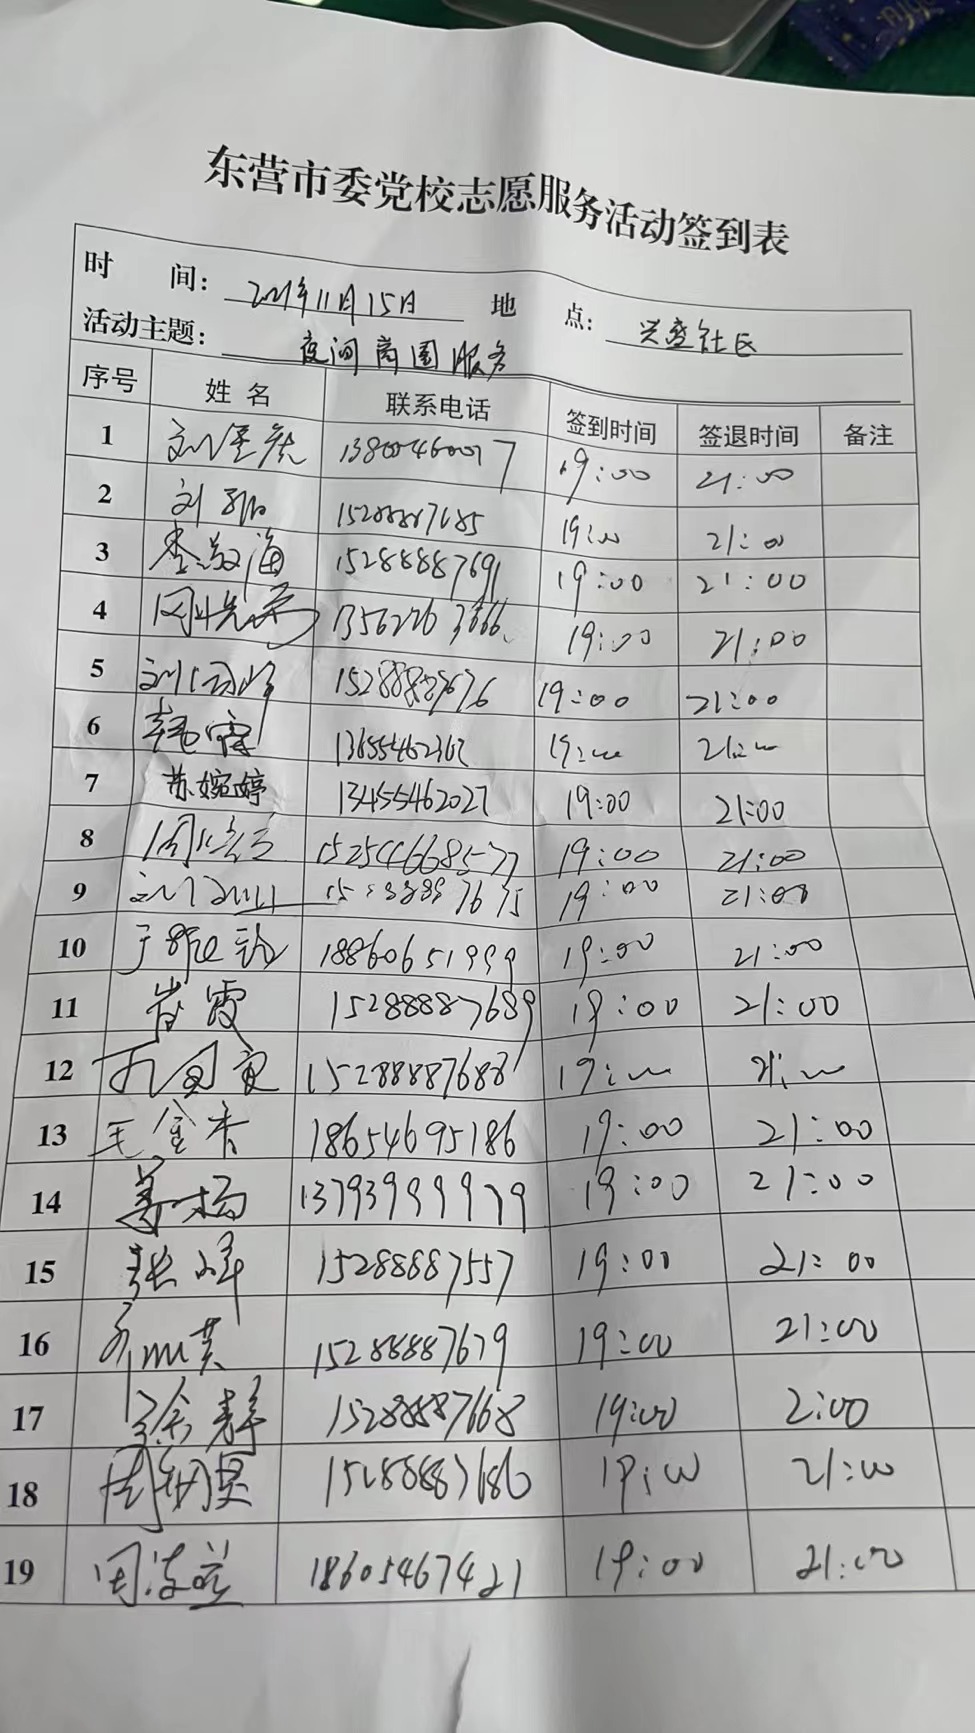 东营市委党校志愿服务活动签到表
时 间: 2021年11月15日 地 点: 兴盛社区
活动主题: 夜间商圈服务
序号 姓名 联系电话 签到时间 签退时间 备注
1 19:00 21:00
2 刘 15288887685 19:00 21:00
3 李 海 15288887691 19:00 21:00
4 19:00 21:00
5 19:00 21:00
6 韩霄 13655462362 19:00 21:00
7 苏婉婷 13455462027 19:00 21:00
8 15254668577 19:00 21:00
9 19:00 21:00
10 于 18860651999 19:00 21:00
11 崔霞 15288887689 19:00 21:00
12 15288887688 19:00 21:00
13 王金香 18654695186 19:00 21:00
14 姜杨 13793999979 19:00 21:00
15 张峰 15288887557 19:00 21:00
16 15288887679 19:00 21:00
17 徐静 15288887668 19:00 2:00
18 15288887686 19:00 21:00
19 18605467421 19:00 21:00